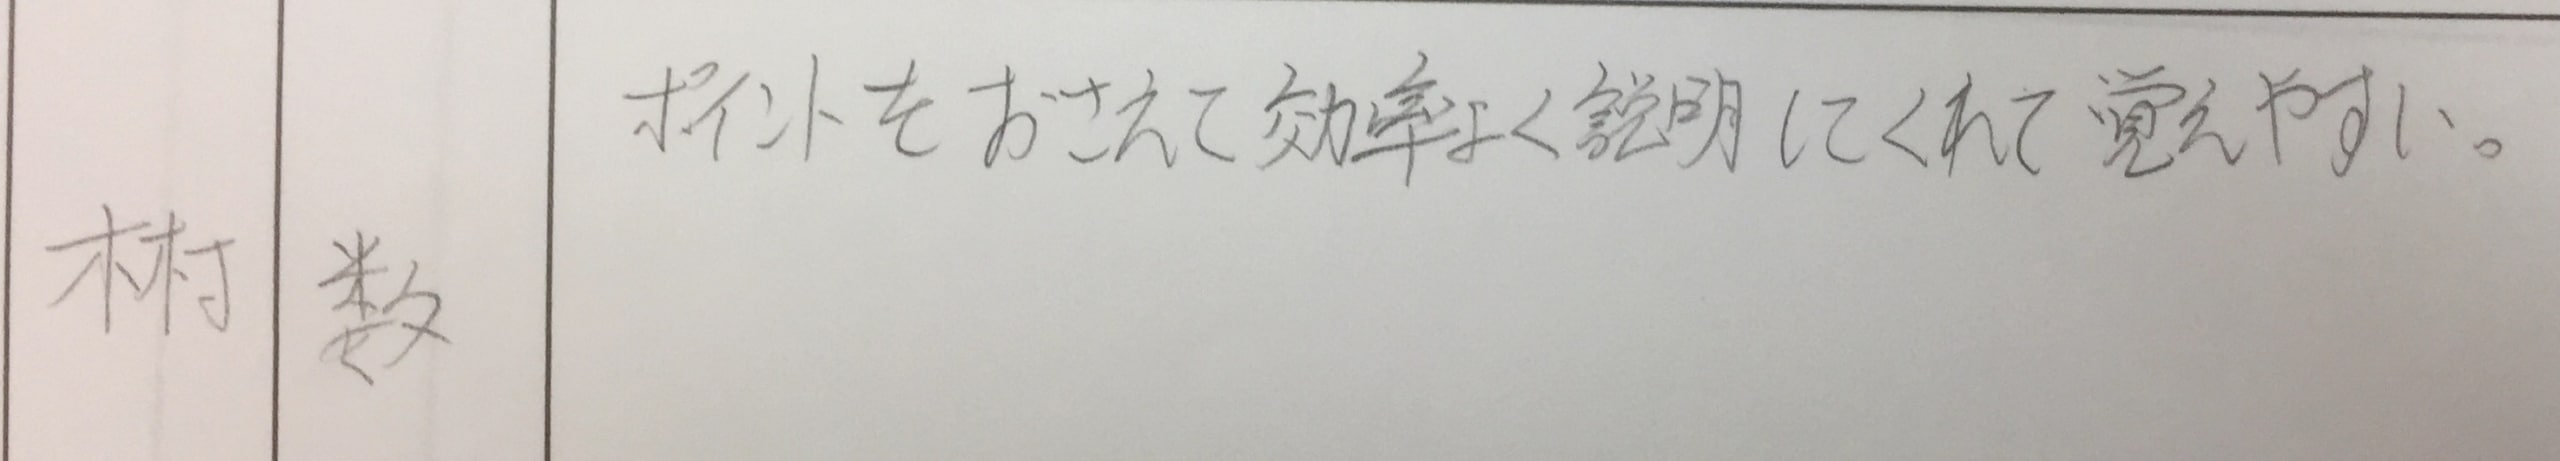 ポイントをおさえて効率よく説明してくれて覚えやすい。
数